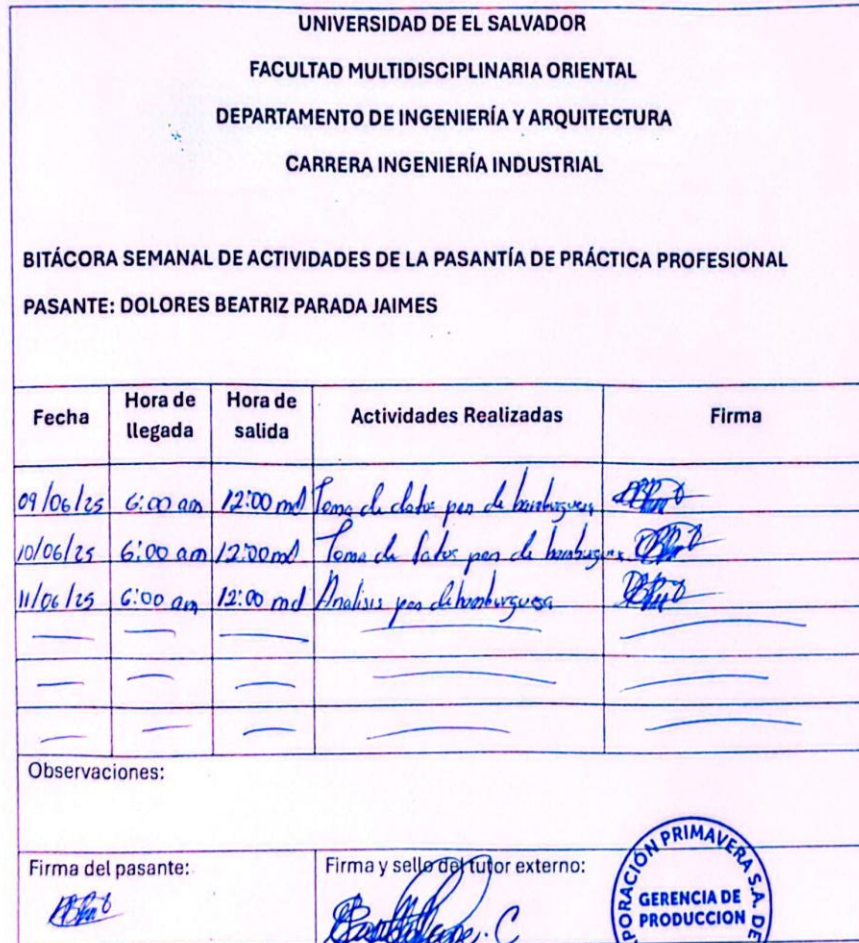 UNIVERSIDAD DE EL SALVADOR
FACULTAD MULTIDISCIPLINARIA ORIENTAL
DEPARTAMENTO DE INGENIERÍA Y ARQUITECTURA
CARRERA INGENIERÍA INDUSTRIAL
BITÁCORA SEMANAL DE ACTIVIDADES DE LA PASANTÍA DE PRÁCTICA PROFESIONAL
PASANTE: DOLORES BEATRIZ PARADA JAIMES
Fecha Hora de llegada Hora de salida Actividades Realizadas Firma
09/06/25 6:00 am 12:00 md Toma de datos pan de hamburguesa
10/06/25 6:00 am 12:00 md Toma de datos pan de hamburguesa
11/06/25 6:00 am 12:00 md Analisis pan de hamburguesa
Observaciones:
Firma del pasante: Firma y sello del tutor externo:
PORACIÓN PRIMAVERA S.A. DE
GERENCIA DE
PRODUCCION